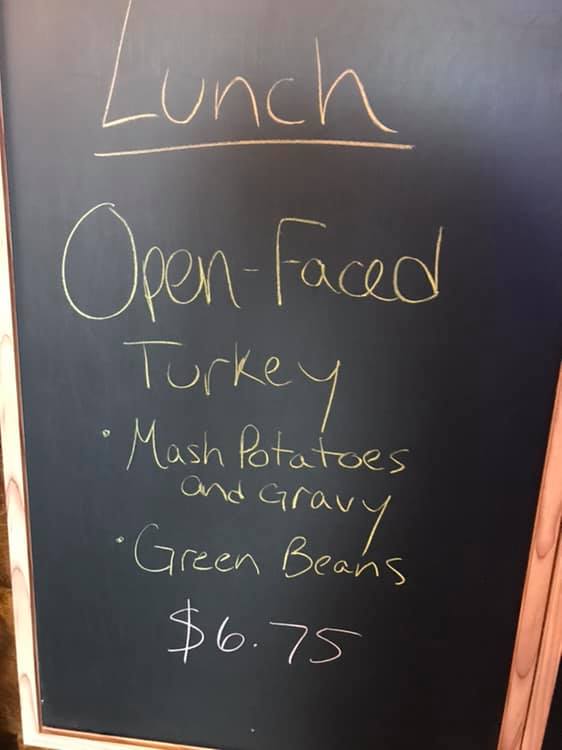 Lunch
Open-Faced
Turkey
• Mash Potatoes
and Gravy
• Green Beans
$6.75